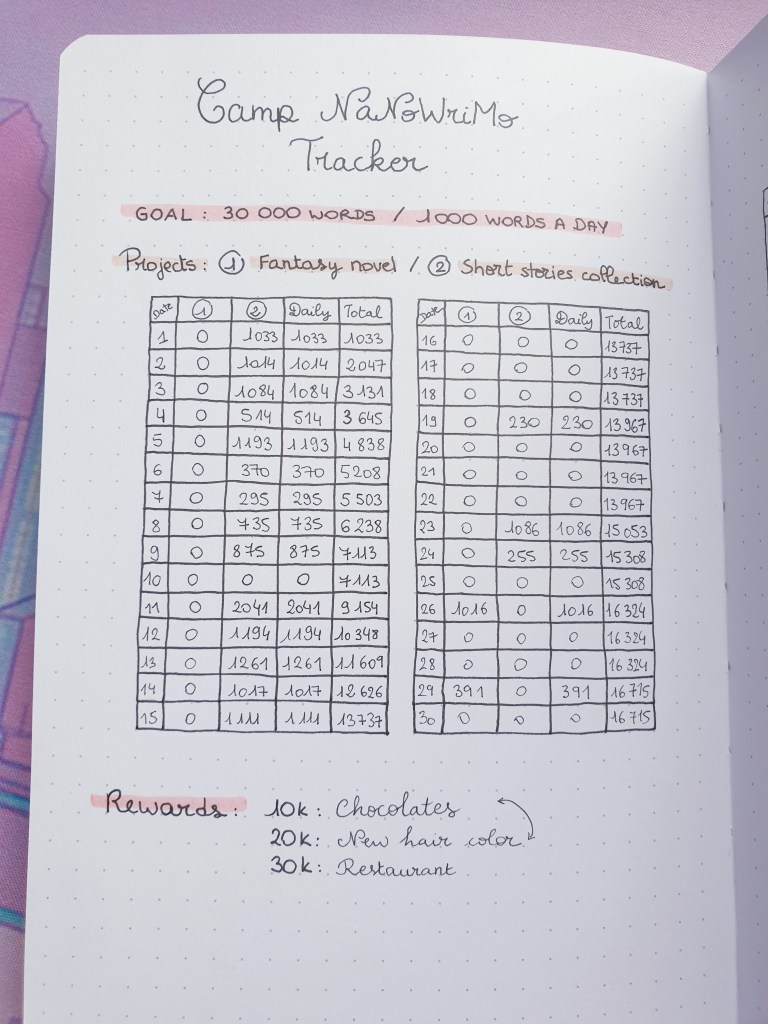 Camp NaNoWriMo
Tracker
GOAL : 30 000 WORDS / 1000 WORDS A DAY
Projects : ① Fantasy novel / ② Short stories collection
Date ① ② Daily Total
1 0 1033 1033 1033
2 0 1014 1014 2047
3 0 1084 1084 3131
4 0 514 514 3 645
5 0 1193 1193 4 838
6 0 370 370 5208
7 0 295 295 5 503
8 0 735 735 6 238
9 0 875 875 7113
10 0 0 0 7113
11 0 2041 2041 9 154
12 0 1194 1194 10 348
13 0 1261 1261 11 609
14 0 1017 1017 12 626
15 0 1111 1111 13737
Date ① ② Daily Total
16 0 0 0 13737
17 0 0 0 13737
18 0 0 0 13737
19 0 230 230 13967
20 0 0 0 13967
21 0 0 0 13967
22 0 0 0 13967
23 0 1086 1086 15 053
24 0 255 255 15 308
25 0 0 0 15 308
26 1016 0 1016 16 324
27 0 0 0 16 324
28 0 0 0 16 324
29 391 0 391 16 715
30 0 0 0 16 715
Rewards : 10k : Chocolates
20k : New hair color
30k : Restaurant